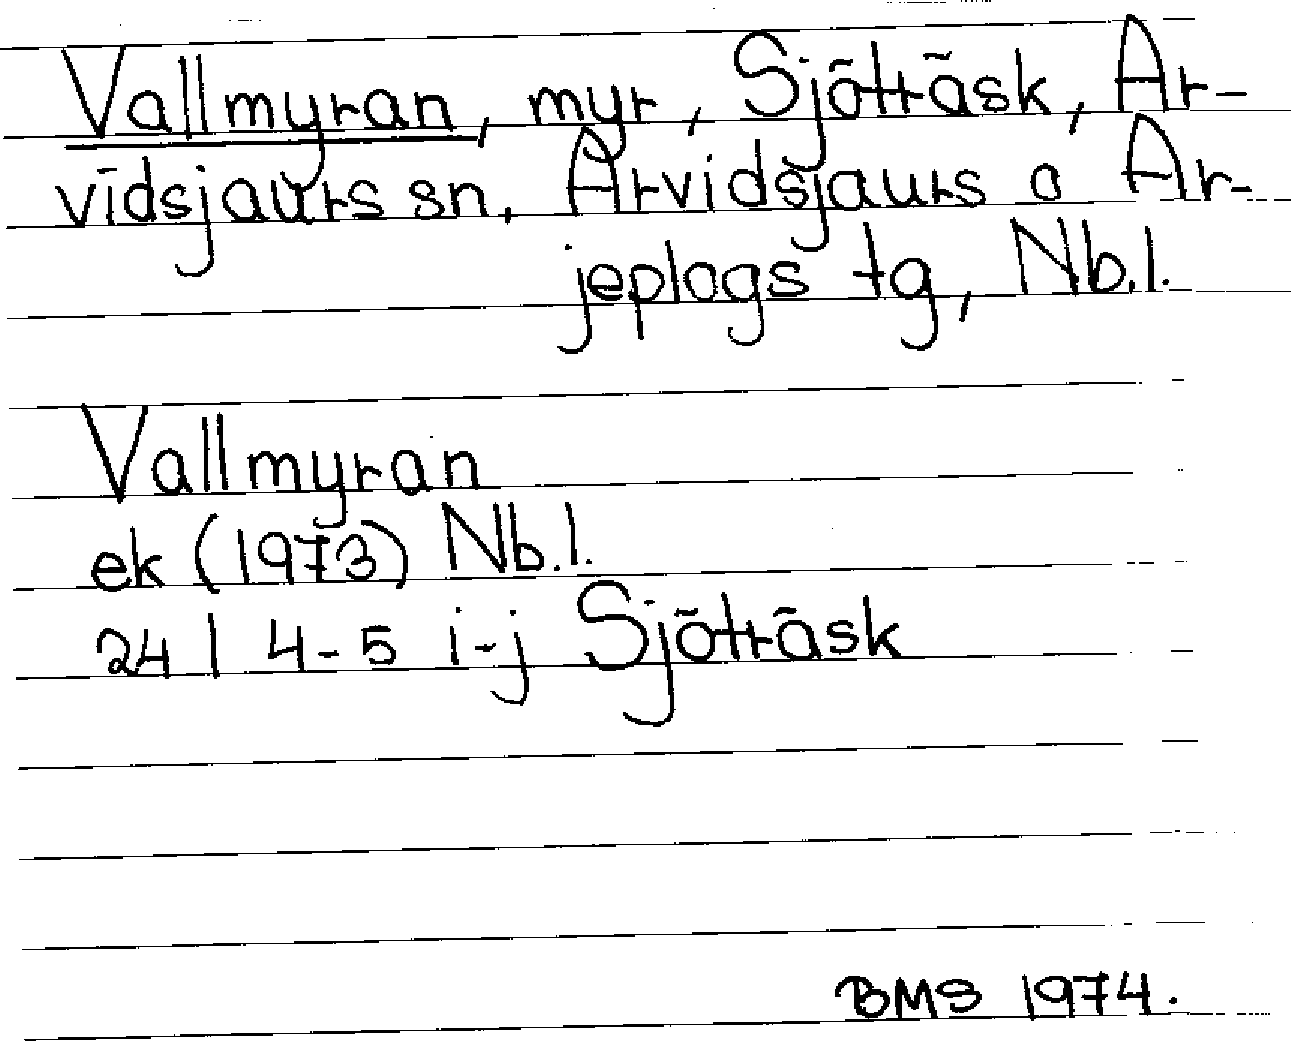 Vallmyran, myr, Sjöträsk, Ar-
vidsjaurs sn, Arvidsjaurs o Ar-
jeplogs tg, Nb.l.
Vallmyran
ek (1973) Nb.l.
24 I 4-5 i-j Sjöträsk
BMS 1974.